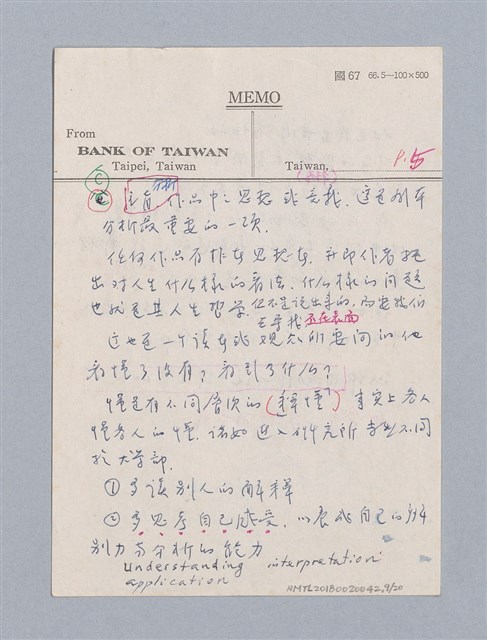 國67 66.5—100×500
MEMO
From
BANK OF TAIWAN
Taipei, Taiwan
Taiwan,
P.5
C
分析
主旨 作品中之思想或意義,這是到底
分析最重要的一項。
任何作品有其思想在,亦即作者提
出對人生什么樣的看法、什么樣的問題
也就是其人生哲学,但不是說出來的,而要我们
去尋找 不在表面
这也是一个读者或观众所要问的他
看懂了沒有?看到了什么?
懂是有不同層次的(「懂」)事实上各人
懂各人的懂,諸如進入研究所 考 不同
於大学部。
① 多读別人的解釋
② 多思考自己感受,以養成自己的
別力与分析的能力
understanding interpretation
application
NMTL20180020042,9/20